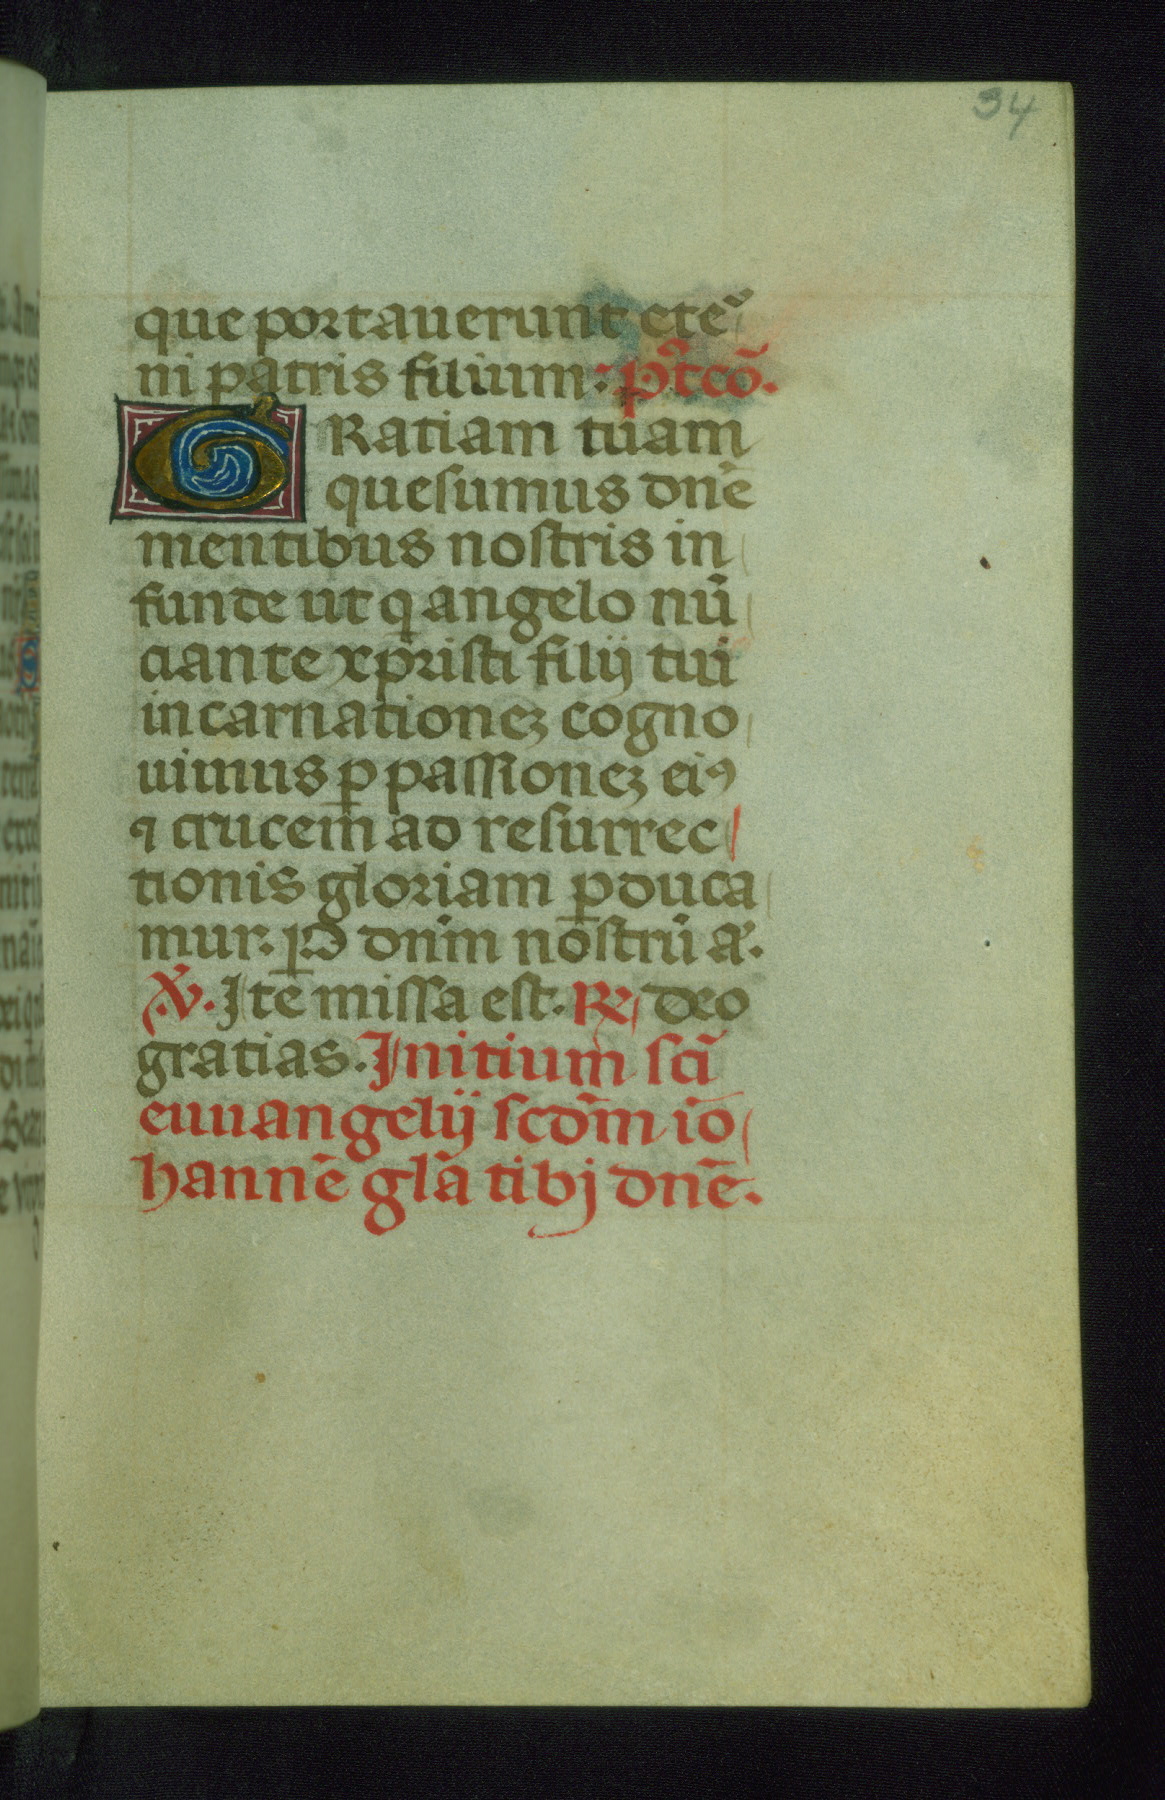 34
que portauerunt eteˀ
ni patris filium. p̃tcõ.
GRatiam tuam
quesumus dnẽ
mentibus nostris in
funde ut q̃ angelo nũ
ciante xp̃risti filij tui
incarnationeꝫ cogno
uimus ꝑ passioneꝫ eiꝰ
⁊ crucem̃ ad resurrec
tionis gloriam ꝑduca
mur. ꝑ dnĩm nostrũ a.
V̇. Itẽ missa est. R̃ deo
gratias. Initium scĩ
euuangelij scdm̃ io
hannẽ glã tibj dnẽ.